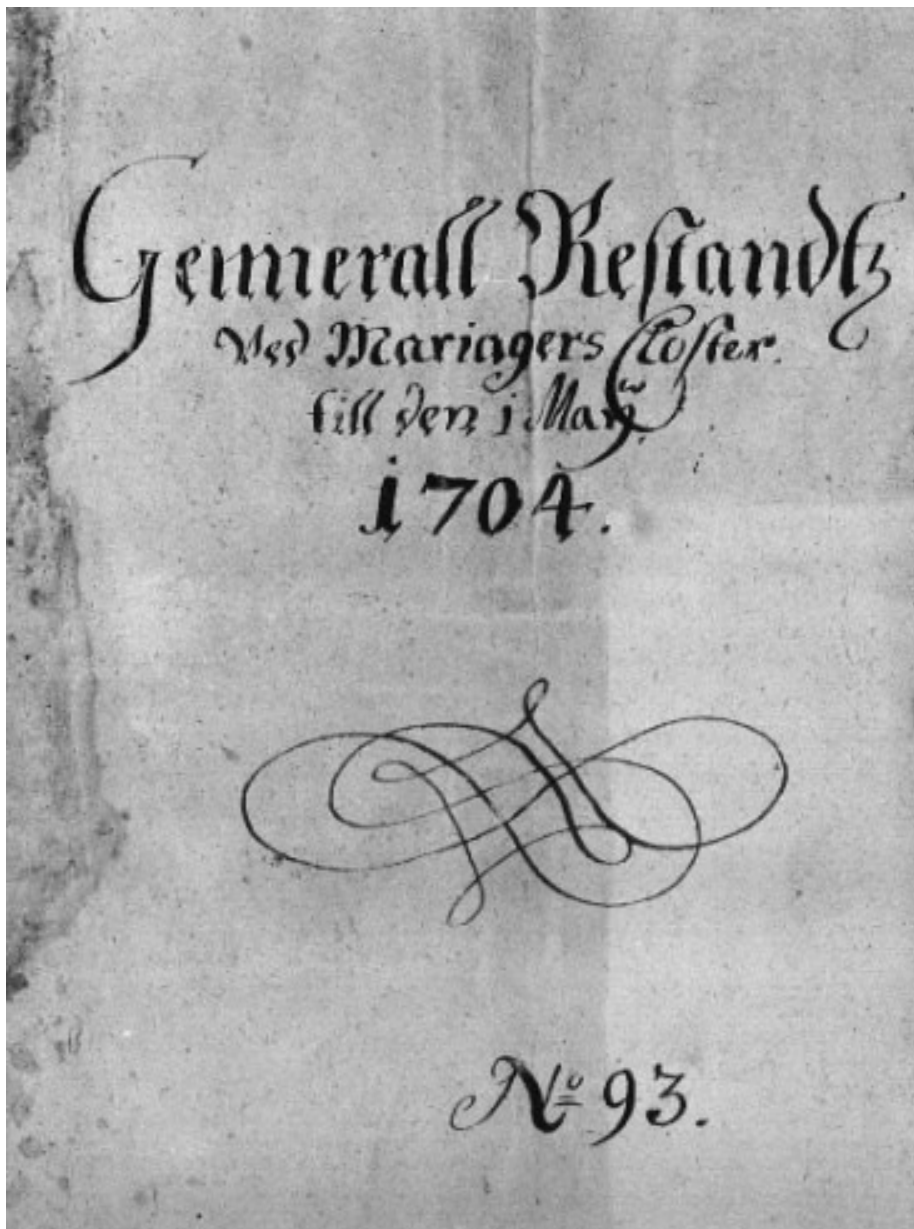 Gennerall Restandtz
Ved Mariagers Closter.
till den 1 Maÿ.
1704.
No 93.